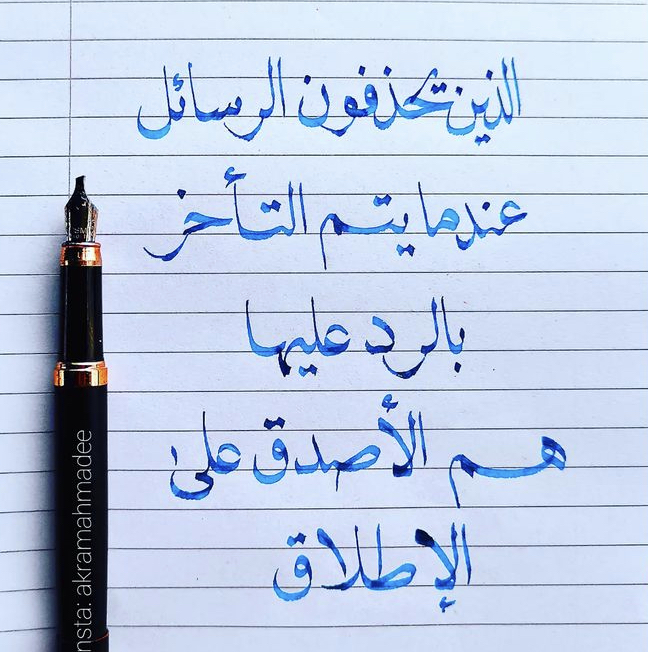 الذين يحذفون الرسائل
عندما يتم التأخر
بالرد عليها
هم الأصدق على
الإطلاق
nsta: akramahmadee